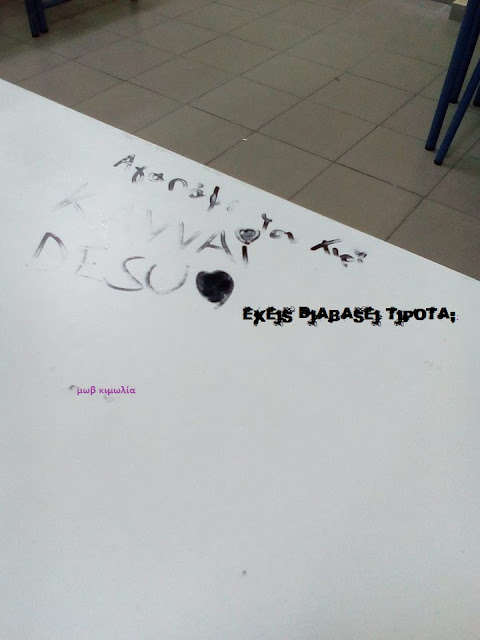 τα
KAWAi
DESU
EXEIS DIABASEI TIPOTA;
μωβ κιμωλία